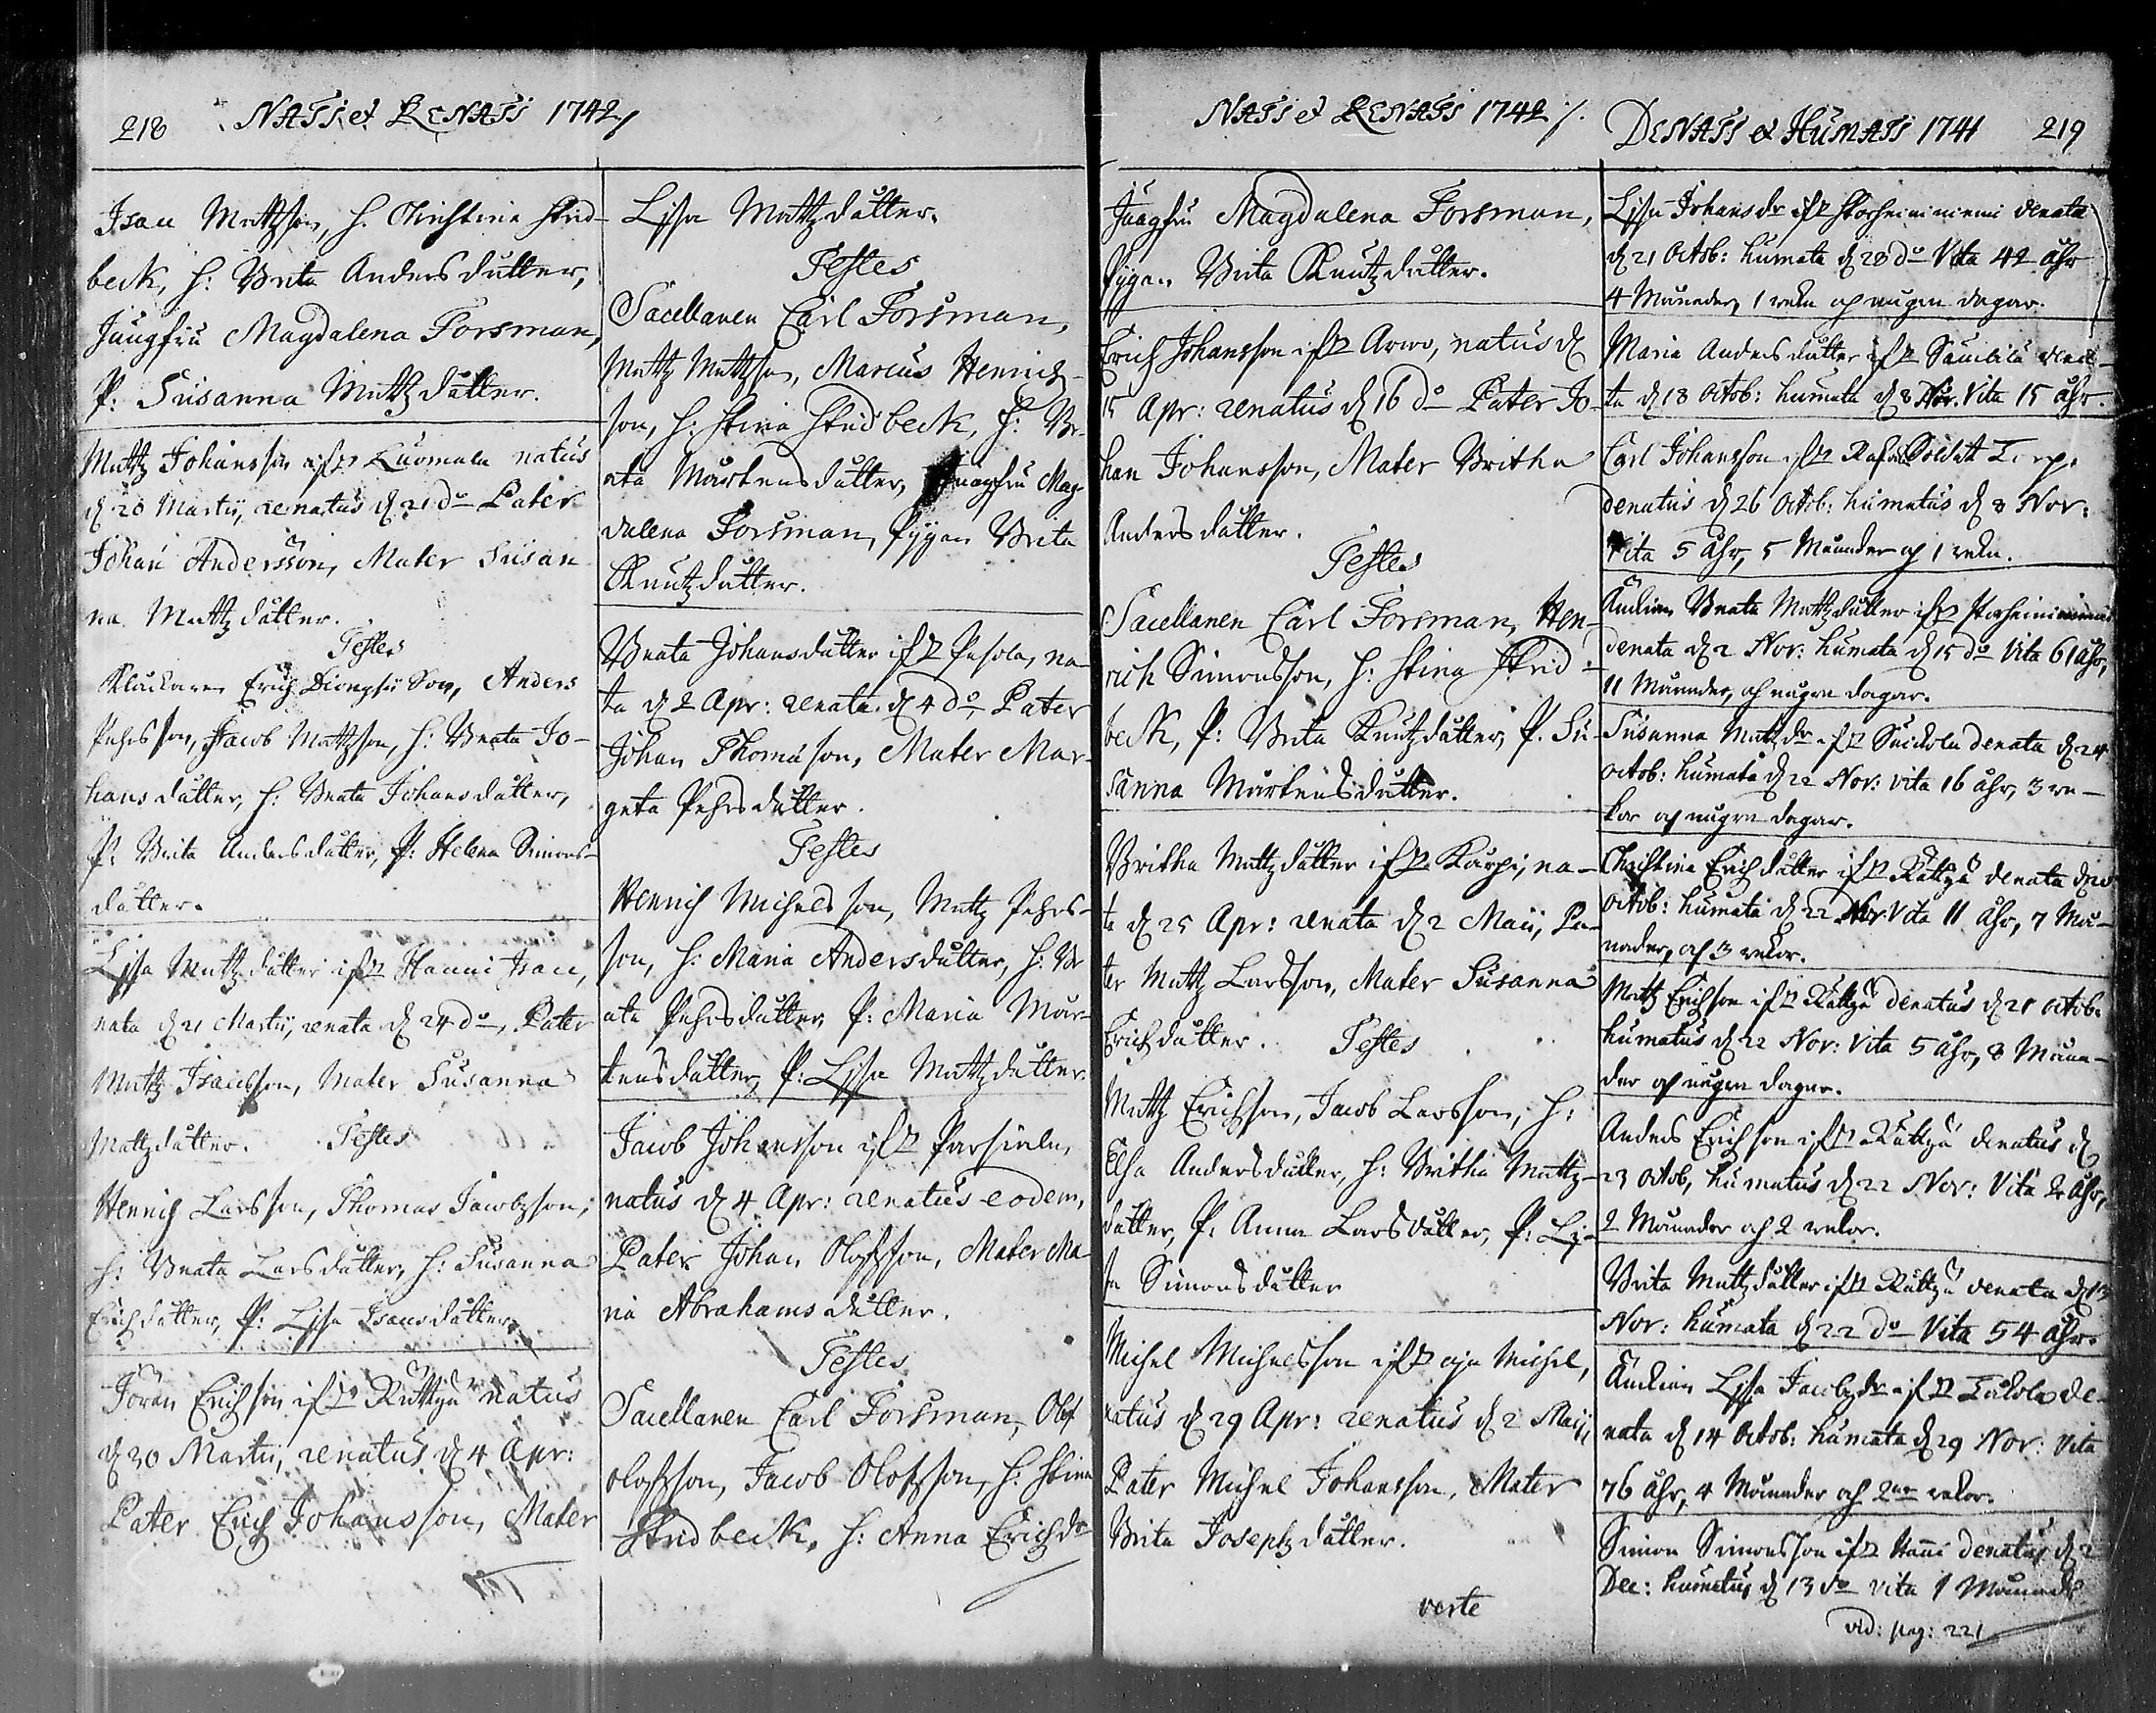 218 NATI et RENATI 1742
Isac Mattzson, h. Christina Skid-
beck, h: Brita Andersdutter,
Jungfru Magdalena Forsman,
P: Susanna Mattzdutter.
Mattz Johansson ifrn Luomala natus
d 20 Martij, renatus d 21 do Pater
Johan Andersson, Mater Susan
na Mattzdutter.
Testes
Klåckaren Erich Dionysii Son, Anders
Pehrsson, Jacob Mattzson, h: Beata Jo-
hansdutter, h: Beata Johansdutter,
P: Brita Andersdutter, P: Helena Simons-
dutter.
Lissa Mattzdutter ifrn Hanni Isac,
nata d 21 Martij, renata d 24 do, Pater
Mattz Isacsson, Mater Susanna
Mattzdutter. Testes
Henrich Larsson, Thomas Jacobzson,
h: Beata Larsdutter, h: Susanna
Erichdutter, P: Lissa Isacsdutter.
Jöran Erichson ifrn Kuttyå natus
d 30 Martij, renatus d 4 Apr:
Pater Erich Johansson, Mater
Lissa Mattzdutter.
Testes
Sacellanen Carl Forsman,
Mattz Mattzson, Marcus Henrich-
son, h: Stina Skidbeck, h: Be-
ata Mårtensdutter, Jungfru Mag-
dalena Forsman, Pygan Brita
Knutzdutter.
Beata Johansdutter ifrn Pesola, na
ta d 2 Apr: renata d 4 do, Pater
Johan Thomason, Mater Mar-
geta Pehrsdutter.
Testes
Henrich Michelsson, Mattz Pehrs-
son, h: Maria Andersdutter, h: Be
ata Pehrsdutter, P: Maria Mår-
tensdutter, P: Lissa Mattzdutter.
Jacob Johansson ifrn Parsiala,
natus d 4 Apr: renatus eodem,
Pater Johan Olofsson, Mater Ma-
ria Abrahamsdutter.
Testes
Sacellanen Carl Forsman, Olof
Olofsson, Jacob Olofsson, h: Stina
Skidbeck, h: Anna Erichdr
NATI et RENATI 1742 /.
Jungfru Magdalena Forsman,
Pygan Brita Knutzdutter.
Erich Johansson ifrn Arwo, natus d
15 Apr: renatus d 16 do Pater Jo-
han Johansson, Mater Britha
Andersdutter.
Testes
Sacellanen Carl Forsman, Hen-
rich Simonsson, h: Stina Skid-
beck, P: Brita Knutzdutter, P. Su-
sanna Mårtensdutter.
Britha Mattzdutter ifrn Karpi, na-
ta d 25 Apr: renata d 2 Maij, Pa-
ter Mattz Larsson, Mater Susanna
Erichdutter. Testes
Mattz Erichson, Jacob Larsson, h:
Elsa Andersdutter, h: Britha Mattz-
dutter, P: Anna Larsdutter, P: Lis-
sa Simonsdutter
Michel Michelsson ifrn Michel,
natus d 29 Apr: renatus d 2 Maij,
Pater Michel Johansson, Mater
Brita Josephzdutter.
verte
DENATI & HUMATI 1741 219
Lissa Johansdr ifrn Storheininiemi denata
d 21 Octob: humata d 28 do Vita 42 åhr
4 Månader, 1 weka och några dagar.
Maria Andersdutter ifrn dena-
ta d 18 Octob: humata d 8 Nor. Vita 15 åhr.
Carl Johansson ifrn Soldatt Torp.
denatus d 26 Octob: humatus d 8 Nov:
Vita 5 åhr, 5 Månader och 1 weka.
Änckian Beata Mattzdutter ifrn Storheininiemi
denata d 2 Nov: humata d 15 do Vita 61 åhr,
11 Månader, och några dagar.
Susanna Mattzdr ifrn denata d 24
Octob: humata d 22 Nov: vita 16 åhr, 3 we-
kor och några dagar.
Christina Erichdutter ifrn Kuttyå denata d 20
Octob: humata d 22 Nov Vita 11 åhr, 7 Må-
nader, och 3 wekor.
Mattz Erichson ifrn Kuttyå denatus d 21 Octob:
humatus d 22 Nov: Vita 5 åhr, 8 Måna-
der och några dagar.
Anders Erichson ifrn Kuttyå denatus d
23 Octob, humatus d 22 Nov: Vita 2 åhr,
2 Månader och 2 wekor.
Brita Mattzdutter ifrn Kuttyå denata d 13
Nov: humata d 22 do Vita 54 åhr.
Änckian Lissa Jacobzdr ifrn de-
nata d 14 Octob: humata d 29 Nov: Vita
76 åhr, 4 Månader och 2ne wekor.
Simon Simonsson ifrn Hanni denatus d 2
Dec: humatus d 13 do vita 1 Månad
vid: pag: 221